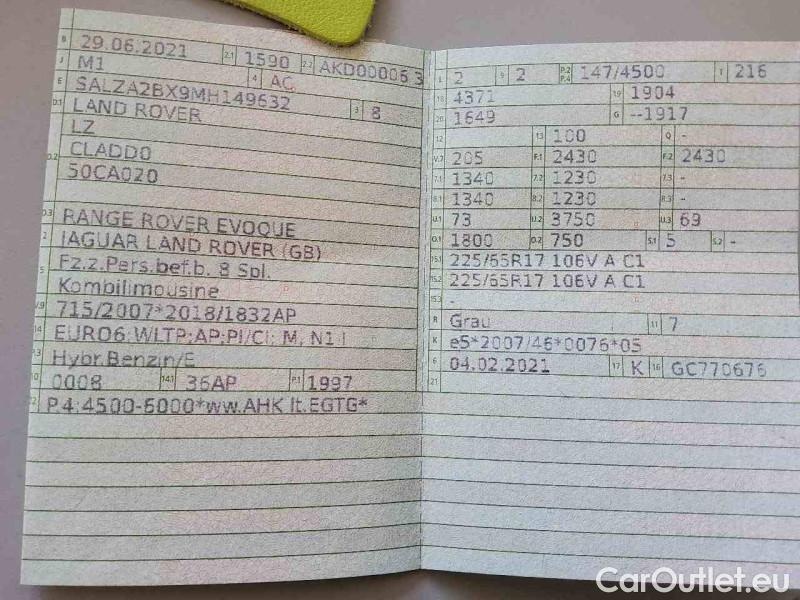 B 29.06.2021 2.1 1590 2.2 AKD00006 3
J M1 4 AC
E SALZA2BX9MH149632 3 8
D.1 LAND ROVER
LZ
D.2 CLADD0
50CA020
D.3 RANGE ROVER EVOQUE
2 JAGUAR LAND ROVER (GB)
5 Fz.z.Pers.bef.b. 8 Spl.
Kombilimousine
V.9 715/2007*2018/1832AP
14 EURO6;WLTP;AP;PI/CI; M, N1 I
P.3 Hybr.Benzin/E
10 0008 14.1 36AP P.1 1997
22 P.4:4500-6000*ww.AHK lt.EGTG*
L 2 9 2 P.2 P.4 147/4500 T 216
18 4371 19 1904
20 1649 G --1917
12 13 100 Q -
V.7 205 F.1 2430 F.2 2430
7.1 1340 7.2 1230 7.3 -
8.1 1340 8.2 1230 8.3 -
U.1 73 U.2 3750 U.3 69
O.1 1800 O.2 750 S.1 5 S.2 -
15.1 225/65R17 106V A C1
15.2 225/65R17 106V A C1
15.3 -
R Grau 11 7
K e5*2007/46*0076*05
6 04.02.2021 17 K 16 GC770676
21
CarOutlet.eu